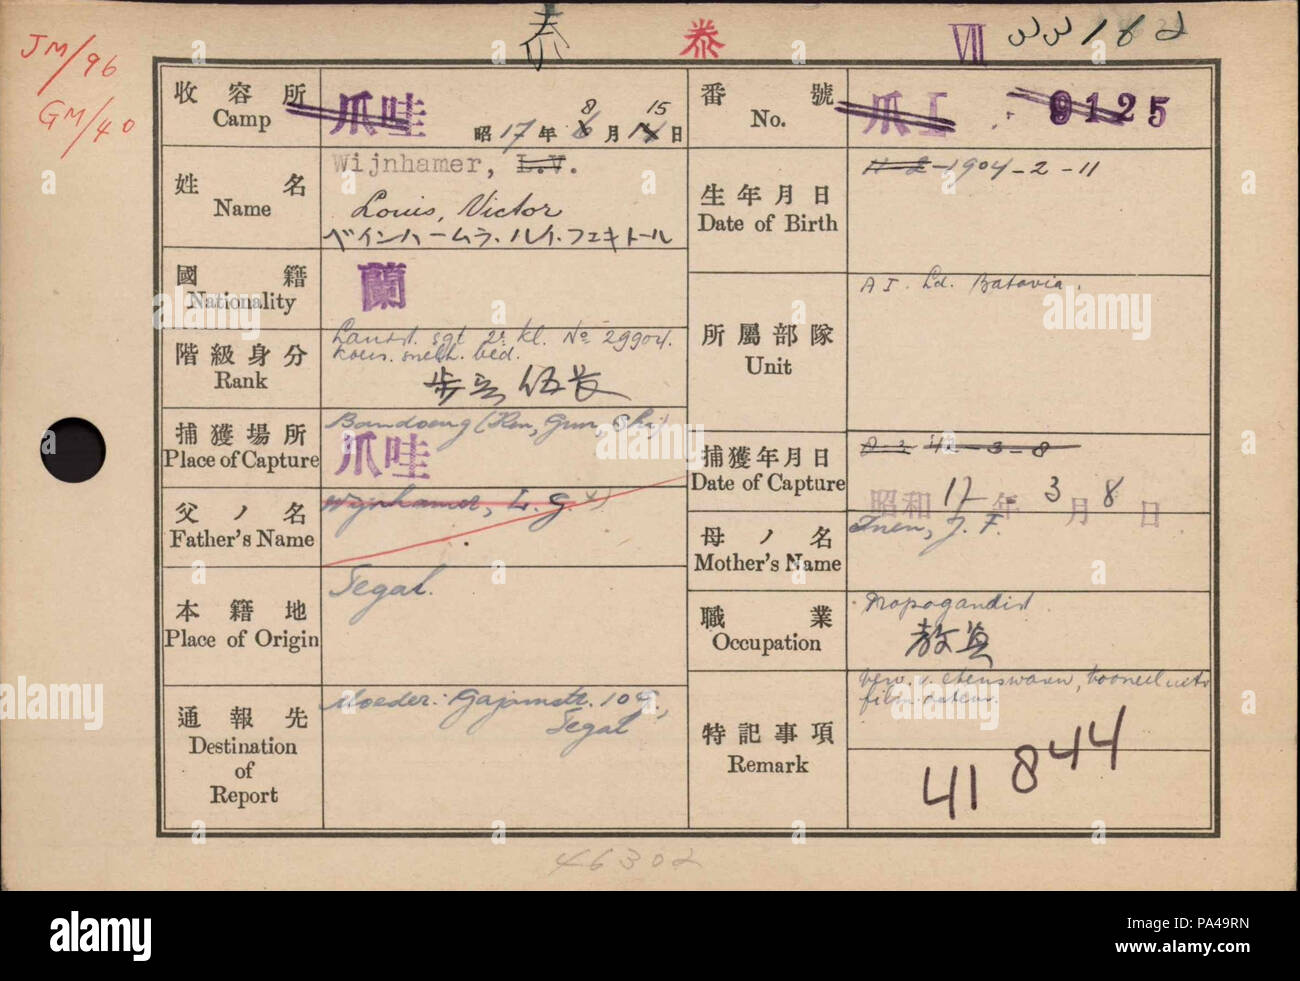 泰 泰 VII 33182
JM/96
GM/40
收容所 Camp
爪哇
昭17年8月15日
番號 No.
爪I 9125
姓名 Name
Wijnhamer, L.V.
Louis, Victor
ベインハームラ.ルイ.フェキトール
生年月日 Date of Birth
11-2-1904-2-11
國籍 Nationality
蘭
所屬部隊 Unit
AI. Ld. Batavia.
階級身分 Rank
Landst. sgt 2e kl. No 29904.
歩兵伍长
捕獲場所 Place of Capture
Bandoeng (Ken, Gun, Shi)
爪哇
捕獲年月日 Date of Capture
8-3-42
昭和17年3月8日
父ノ名 Father's Name
Wijnhamer, L. G.
母ノ名 Mother's Name
J. F.
本籍地 Place of Origin
Tegal.
職業 Occupation
Propagandist
教員
通報先 Destination of Report
Moeder: Gajamstr. 104,
Tegal
特記事項 Remark
41844
46302
alamy
alamy stock photo
PA49RN
www.alamy.com